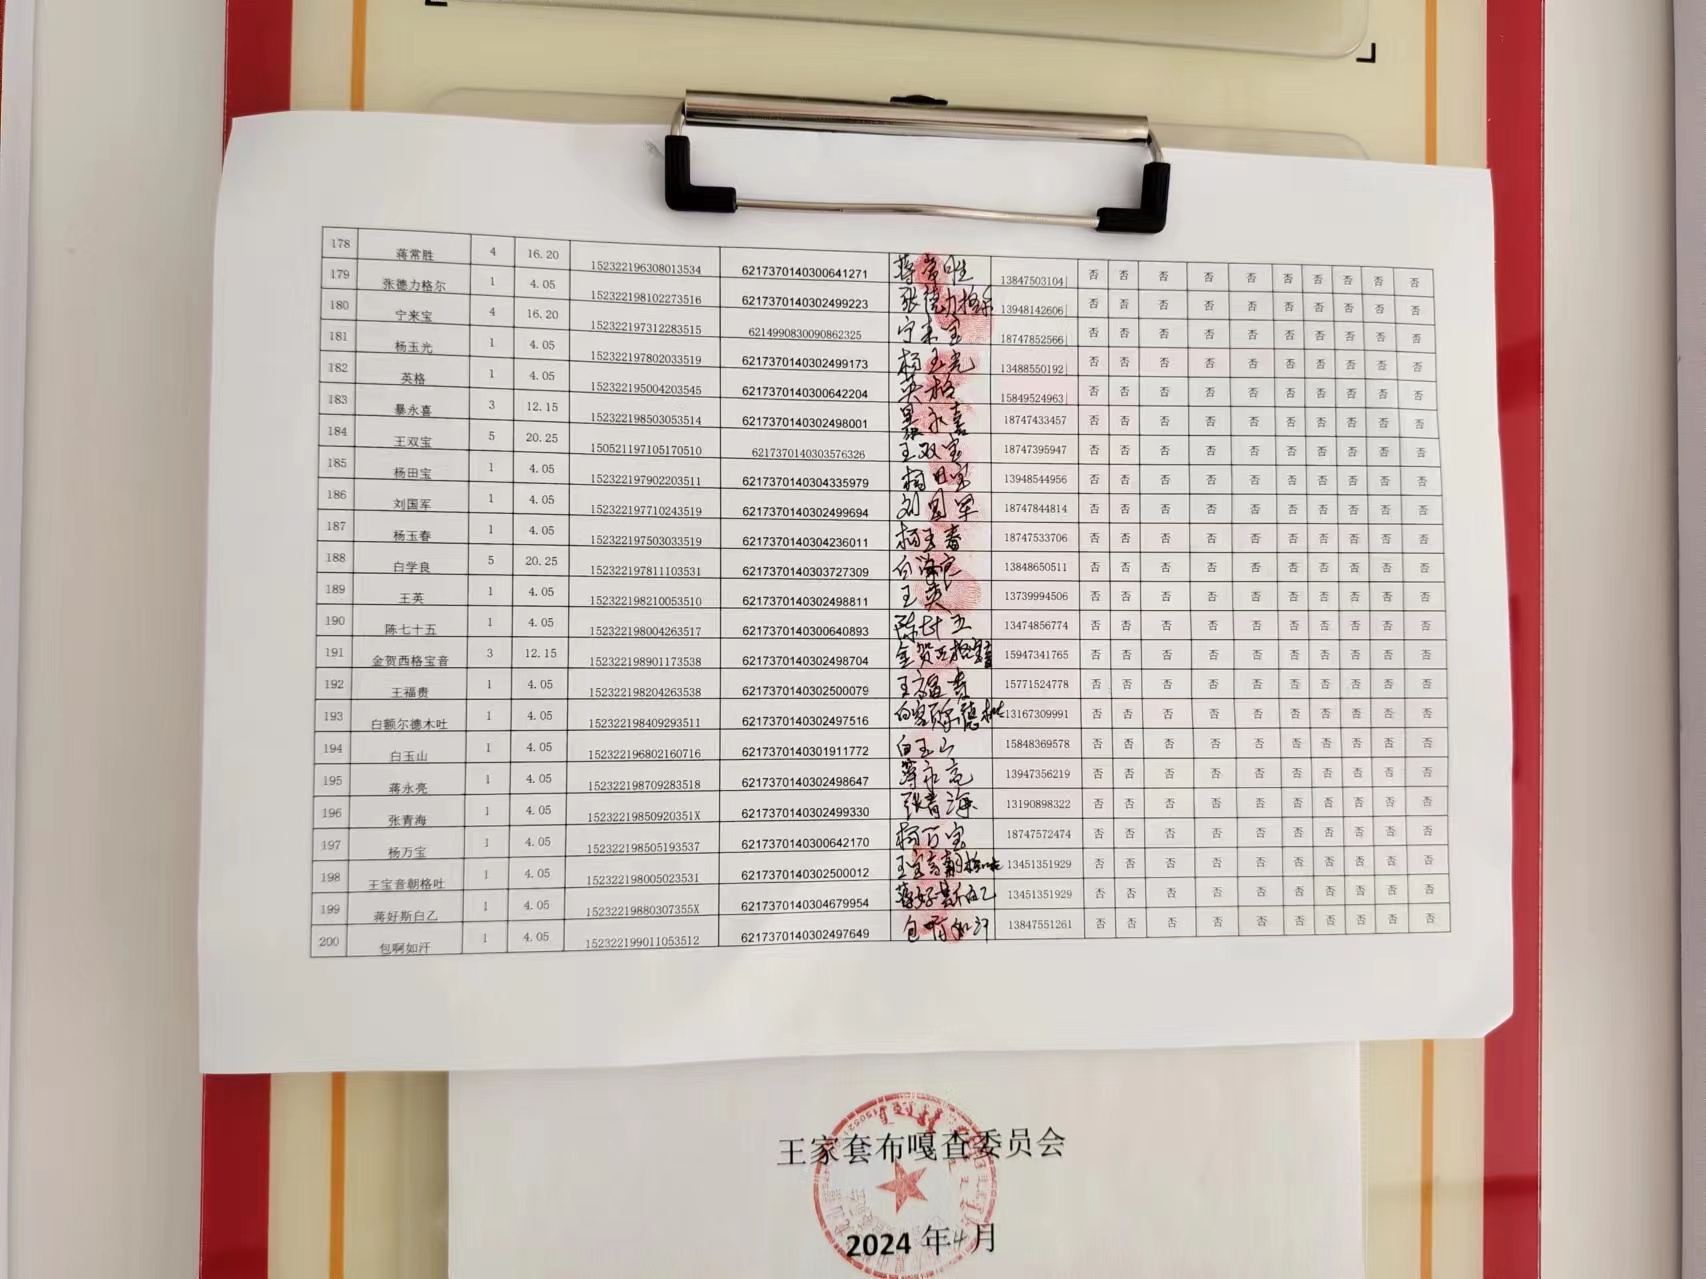 178 蒋常胜 4 16.20 152322196308013534 6217370140300641271 蒋常胜 13847503104 否 否 否 否 否 否 否 否 否 否
179 张德力格尔 1 4.05 152322198102273516 6217370140302499223 张德力格尔 13948142606 否 否 否 否 否 否 否 否 否 否
180 宁来宝 4 16.20 152322197312283515 6214990830090862325 宁来宝 18747852566 否 否 否 否 否 否 否 否 否 否
181 杨玉光 1 4.05 152322197802033519 6217370140302499173 杨玉光 13488550192 否 否 否 否 否 否 否 否 否 否
182 英格 1 4.05 152322195004203545 6217370140300642204 英格 15849524963 否 否 否 否 否 否 否 否 否 否
183 暴永喜 3 12.15 152322198503053514 6217370140302498001 暴永喜 18747433457 否 否 否 否 否 否 否 否 否 否
184 王双宝 5 20.25 150521197105170510 6217370140303576326 王双宝 18747395947 否 否 否 否 否 否 否 否 否 否
185 杨田宝 1 4.05 152322197902203511 6217370140304335979 杨田宝 13948544956 否 否 否 否 否 否 否 否 否 否
186 刘国军 1 4.05 152322197710243519 6217370140302499694 刘国军 18747844814 否 否 否 否 否 否 否 否 否 否
187 杨玉春 1 4.05 152322197503033519 6217370140304236011 杨玉春 18747533706 否 否 否 否 否 否 否 否 否 否
188 白学良 5 20.25 152322197811103531 6217370140303727309 13848650511 否 否 否 否 否 否 否 否 否 否
189 王英 1 4.05 152322198210053510 6217370140302498811 王英 13739994506 否 否 否 否 否 否 否 否 否 否
190 陈七十五 1 4.05 152322198004263517 6217370140300640893 陈七十五 13474856774 否 否 否 否 否 否 否 否 否 否
191 金贺西格宝音 3 12.15 152322198901173538 6217370140302498704 金贺西格宝音 15947341765 否 否 否 否 否 否 否 否 否 否
192 王福贵 1 4.05 152322198204263538 6217370140302500079 王福贵 15771524778 否 否 否 否 否 否 否 否 否 否
193 白额尔德木吐 1 4.05 152322198409293511 6217370140302497516 13167309991 否 否 否 否 否 否 否 否 否 否
194 白玉山 1 4.05 152322196802160716 6217370140301911772 白玉山 15848369578 否 否 否 否 否 否 否 否 否 否
195 蒋永亮 1 4.05 152322198709283518 6217370140302498647 蒋永亮 13947356219 否 否 否 否 否 否 否 否 否 否
196 张青海 1 4.05 15232219850920351X 6217370140302499330 张青海 13190898322 否 否 否 否 否 否 否 否 否 否
197 杨万宝 1 4.05 152322198505193537 6217370140300642170 杨万宝 18747572474 否 否 否 否 否 否 否 否 否 否
198 王宝音朝格吐 1 4.05 152322198005023531 6217370140302500012 王宝音朝格吐 13451351929 否 否 否 否 否 否 否 否 否 否
199 蒋好斯白乙 1 4.05 15232219880307355X 6217370140304679954 蒋好斯白乙 13451351929 否 否 否 否 否 否 否 否 否 否
200 包啊如汗 1 4.05 152322199011053512 6217370140302497649 包啊如汗 13847551261 否 否 否 否 否 否 否 否 否 否
王家套布嘎查委员会
2024 年 4 月